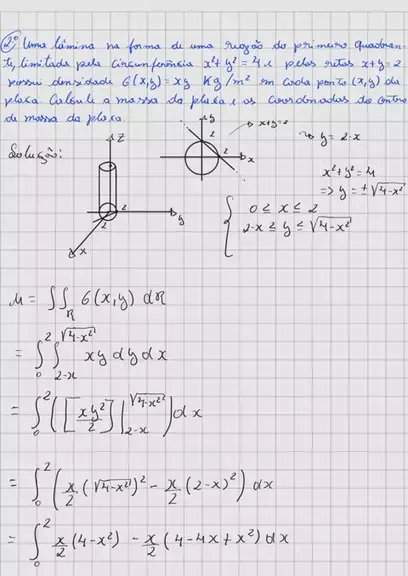 2º) Uma lâmina na forma de uma região do primeiro quadran-
te, limitada pela circunferência x²+y²=4 e pelas retas x+y=2
possui densidade δ(x,y)=xy Kg/m² em cada ponto (x,y) da
placa. Calcule a massa da placa e as coordenadas do centro
de massa da placa.
Solução:
z
y
x
2
2
y
x
2
2
x+y=2
y = 2-x
x²+y²=4
=> y = ±√(4-x²)
0 ≤ x ≤ 2
2-x ≤ y ≤ √(4-x²)
M = ∫∫_R δ(x,y) dR
= ∫_0^2 ∫_{2-x}^{√(4-x²)} xy dy dx
= ∫_0^2 ([xy²/2]|_{2-x}^{√(4-x²)}) dx
= ∫_0^2 (x/2 (√(4-x²))² - x/2 (2-x)²) dx
= ∫_0^2 x/2 (4-x²) - x/2 (4-4x+x²) dx